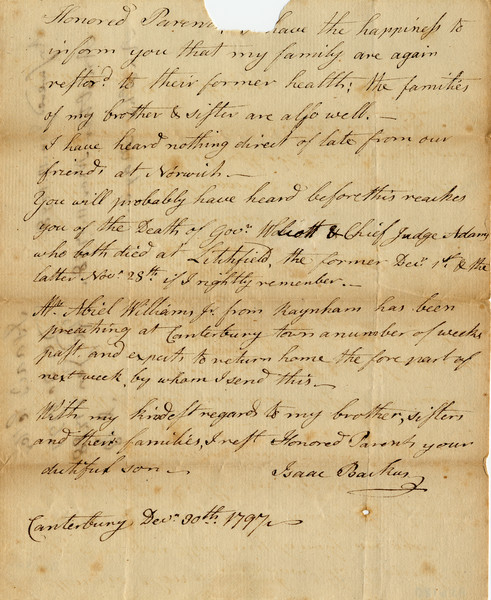 Honored Parents, I have the happiness to
inform you that my family are again
restor'd to their former health; the families
of my brother & sister are also well. —
I have heard nothing direct of late from our
friends at Norwich. —
You will probably have heard before this reaches
you of the Death of Govr. Wolcott & Chief Judge Adams
who both died at Litchfield, the former Decr. 1st. & the
latter Novr. 28th. if I rightly remember. —
Mr. Abiel Williams Jr. from Raynham has been
preaching at Canterbury town a number of weeks
past, and expects to return home the fore part of
next week by whom I send this —
With my kindest regard to my brother, sisters
and their families, I rest Honored Parents your
dutiful son — Isaac Backus
Canterbury Decr. 30th. 1797 —